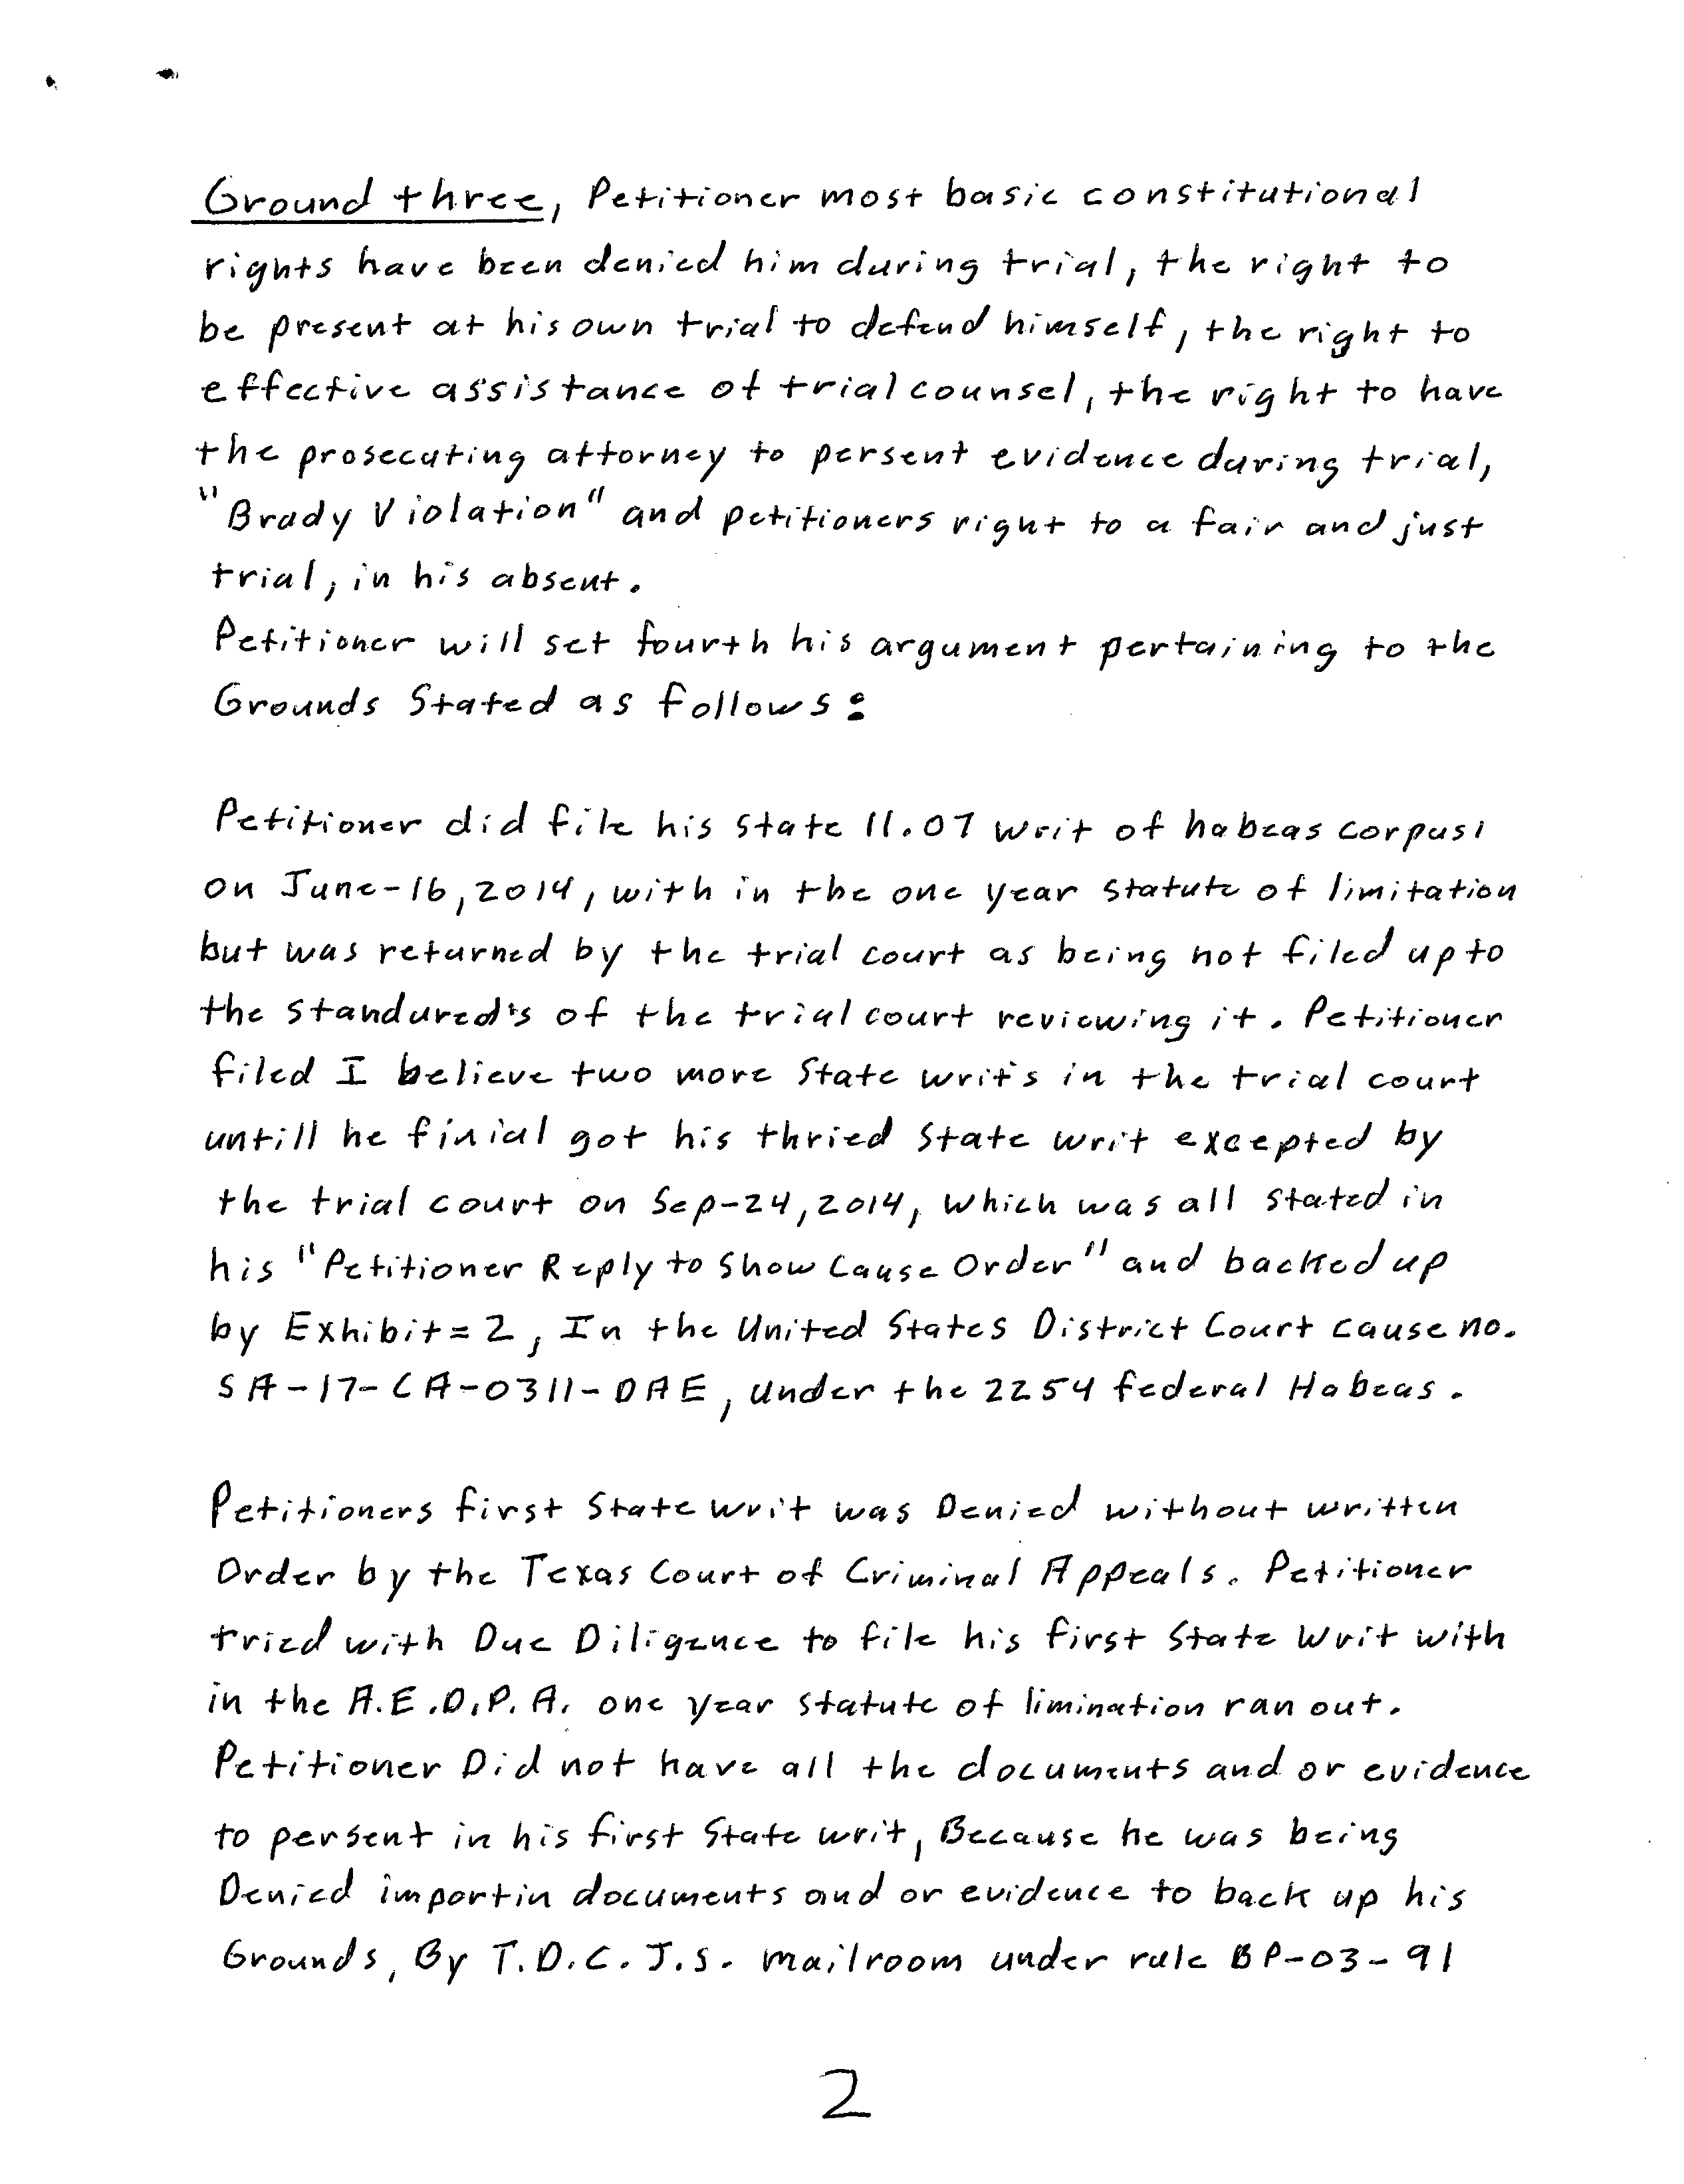 Ground three, Petitioner most basic constitutional
rights have been denied him during trial, the right to
be present at his own trial to defend himself, the right to
effective assistance of trial counsel, the right to have
the prosecuting attorney to persent evidence during trial,
"Brady Violation" and petitioners right to a fair and just
trial, in his absent.
Petitioner will set fourth his argument pertaining to the
Grounds Stated as follows:
Petitioner did file his State 11.07 writ of habeas corpus,
on June-16, 2014, with in the one year statute of limitation
but was returned by the trial court as being not filed up to
the standured's of the trial court reviewing it. Petitioner
filed I believe two more State writ's in the trial court
untill he finial got his thried State writ excepted by
the trial court on Sep-24, 2014, which was all stated in
his "Petitioner Reply to Show Cause Order" and backed up
by Exhibit=2, In the United States District Court cause no.
SA-17-CA-0311-DAE, under the 2254 federal Habeas.
Petitioners first State writ was Denied without written
Order by the Texas Court of Criminal Appeals. Petitioner
tried with Due Diligence to file his first State Writ with
in the A.E.D.P.A. one year statute of limination ran out.
Petitioner Did not have all the documents and or evidence
to persent in his first State writ, Because he was being
Denied importin documents and or evidence to back up his
Grounds, By T.D.C.J.S. mailroom under rule BP-03-91
2